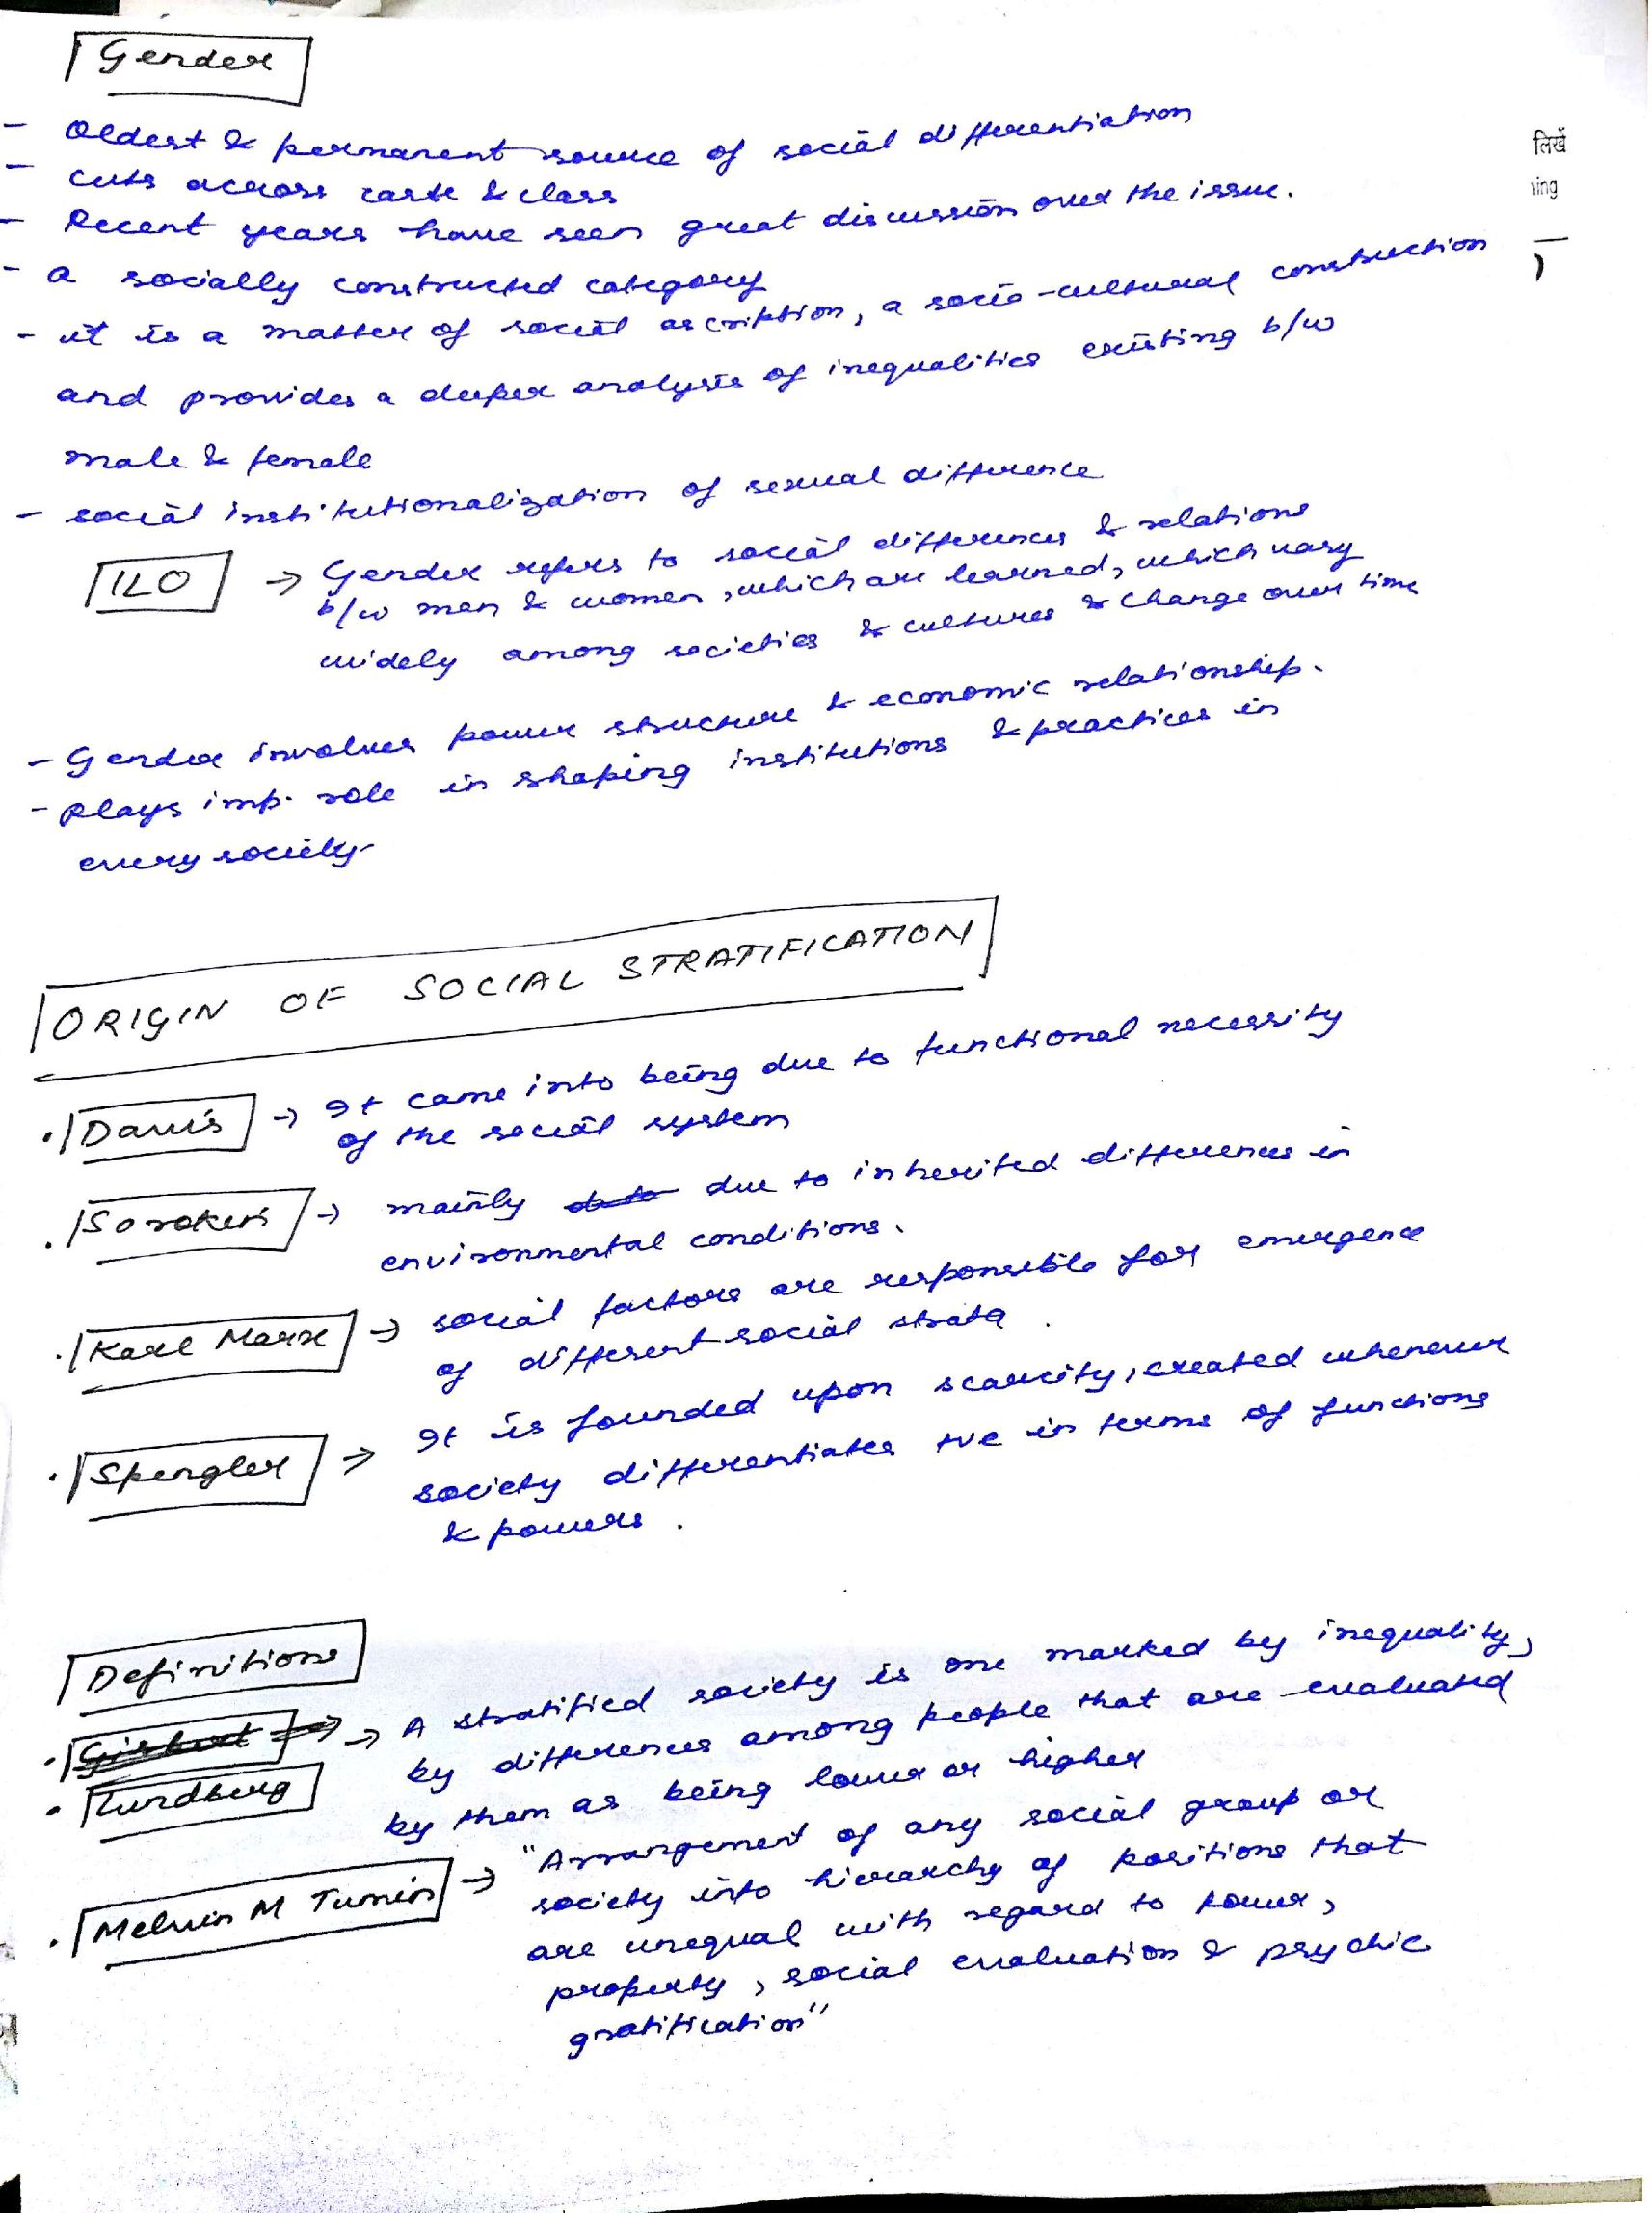 Gender
- Oldest & permanent source of social differentiation
- cuts across caste & class
- Recent years have seen great discussion over the issue.
- a socially constructed category
- it is a matter of social ascription, a socio-cultural construction
and provides a deeper analysis of inequalities existing b/w
male & female
- social institutionalization of sexual difference
ILO → Gender refers to social differences & relations
b/w men & women, which are learned, which vary
widely among societies & cultures & change over time
- Gender involves power structure & economic relationship.
- plays imp. role in shaping institutions & practices in
every society
ORIGIN OF SOCIAL STRATIFICATION
. Davis → It came into being due to functional necessity
of the social system
. Sorokin → mainly due to inherited differences in
environmental conditions.
. Karl Marx → social factors are responsible for emergence
of different social strata.
. Spengler → It is founded upon scarcity, created whenever
society differentiates +ve in terms of functions
& powers.
Definitions
. Gisbert → → A stratified society is one marked by inequality,
by differences among people that are evaluated
. Lundberg
by them as being lower or higher
. Melvin M Tumin → "Arrangement of any social group or
society into hierarchy of positions that
are unequal with regard to power,
property, social evaluation & psychic
gratification"
लिखें
ning
)